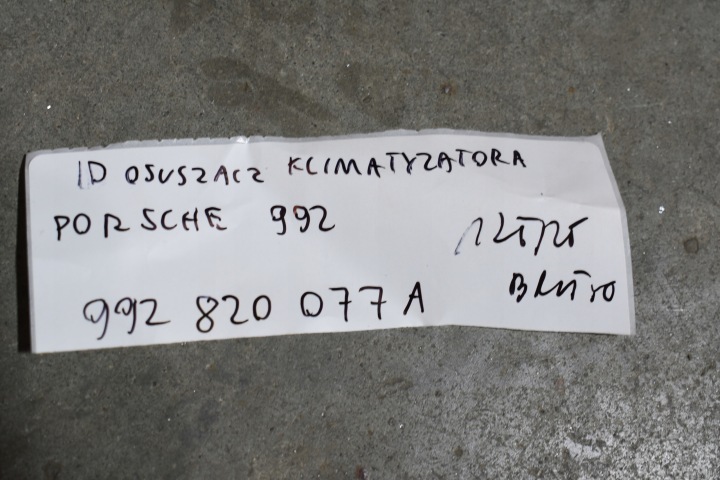 ID OSUSZACZ KLIMATYZATORA
PORSCHE 992
BRUTTO
992 820 077 A